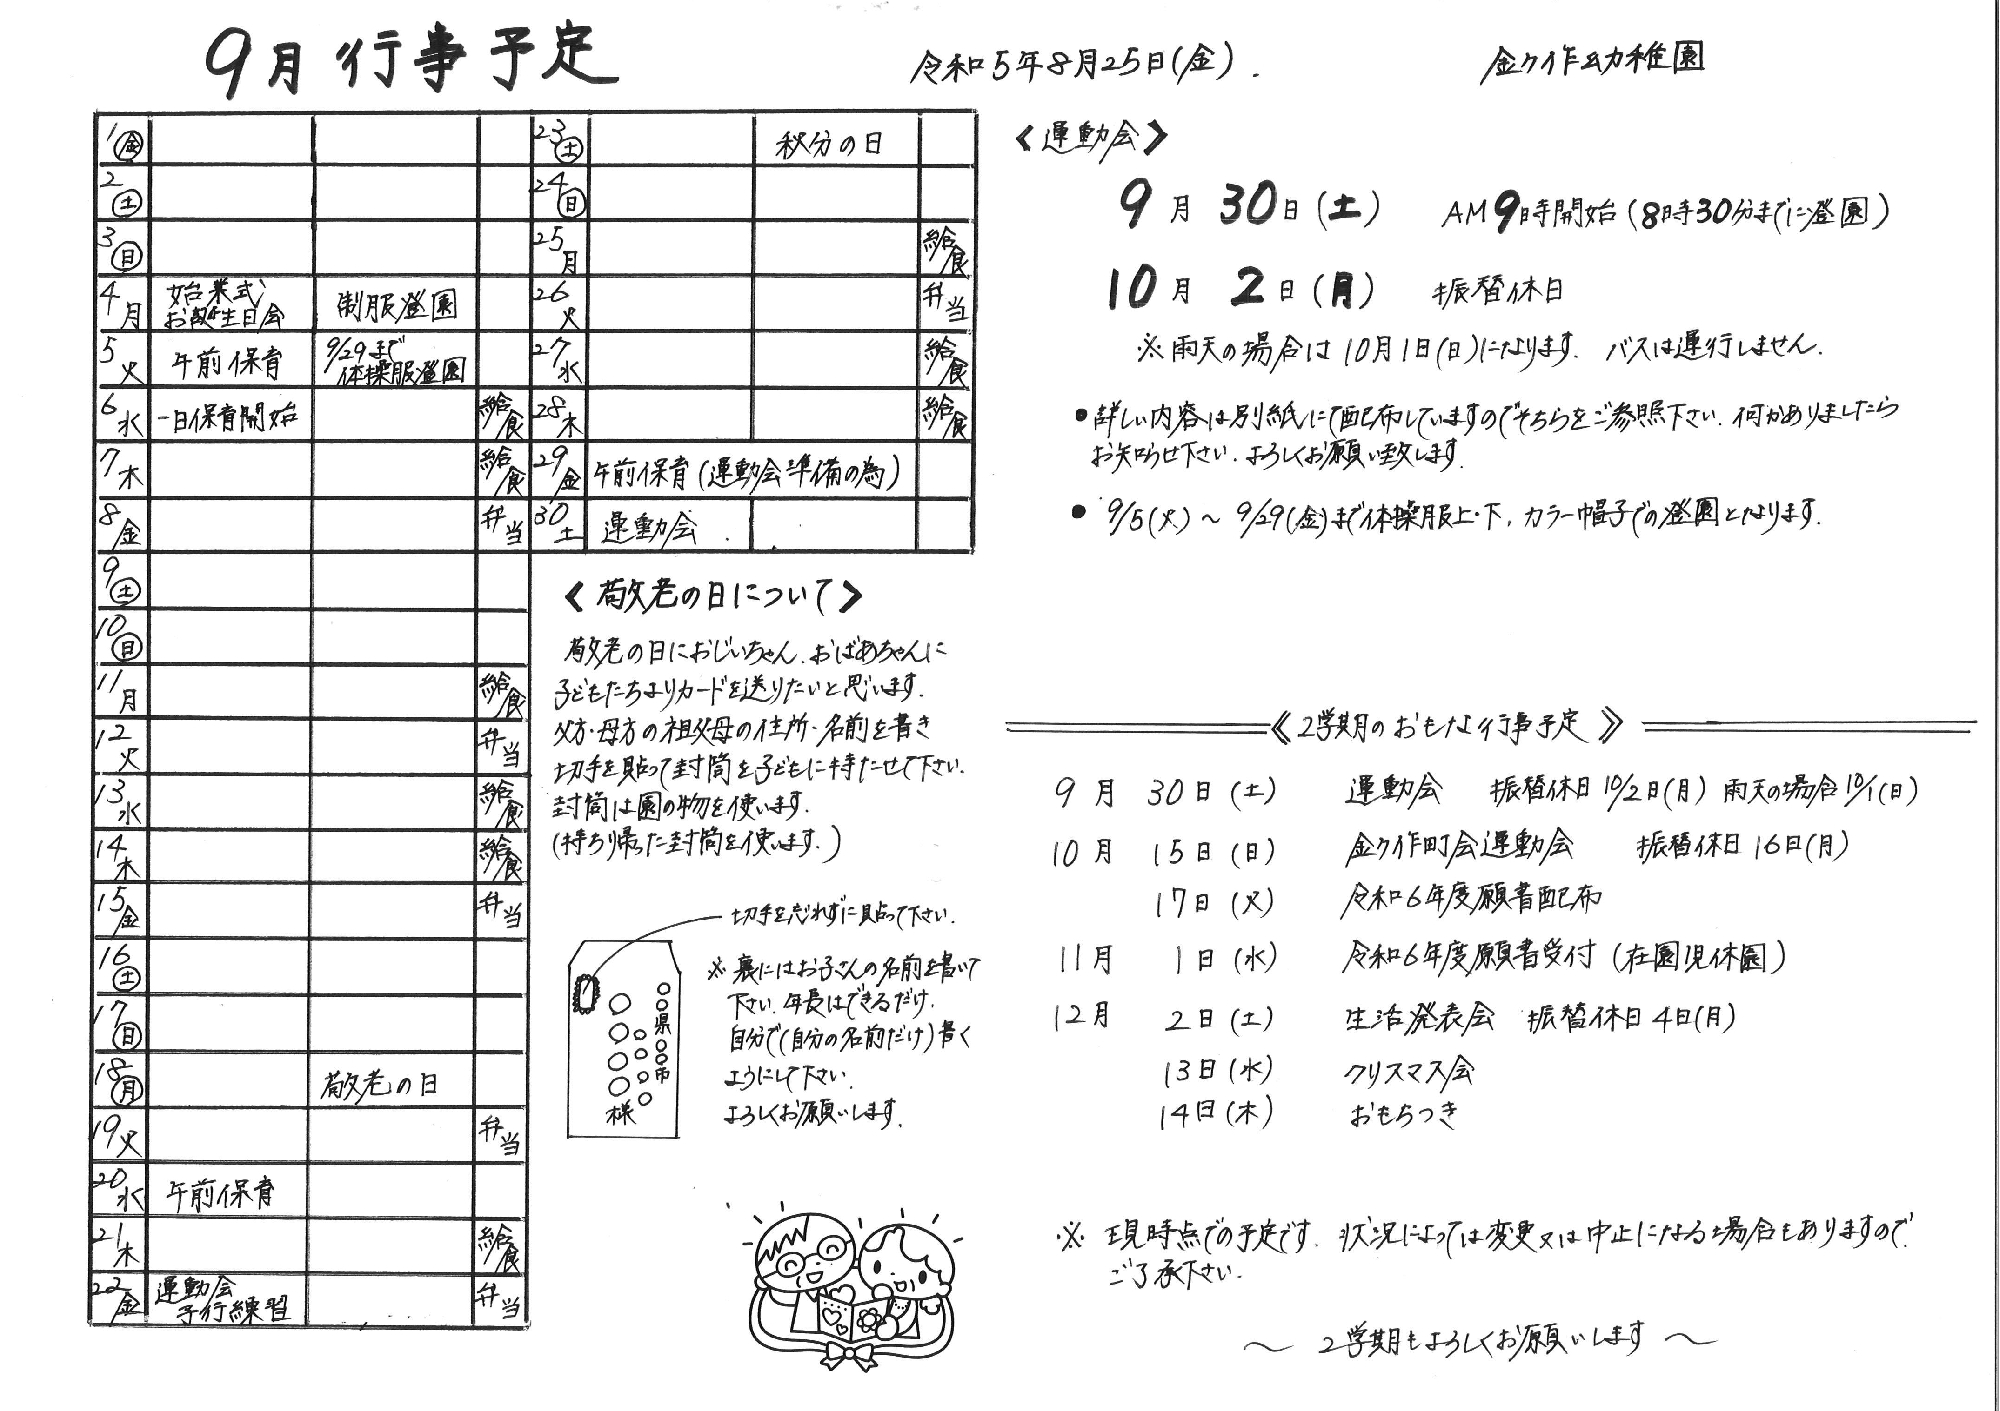 9月 行事予定
令和5年8月25日(金).
金ケ作幼稚園
1 金
2 土
3 日
4 月 始業式 お誕生日会 制服登園
5 火 午前保育 9/29まで 体操服登園
6 水 一日保育開始 給食
7 木 給食
8 金 弁当
9 土
10 日
11 月 給食
12 火 弁当
13 水 給食
14 木 給食
15 金 弁当
16 土
17 日
18 月 敬老の日
19 火 弁当
20 水 午前保育
21 木 給食
22 金 運動会 予行練習 弁当
23 土 秋分の日
24 日
25 月 給食
26 火 弁当
27 水 給食
28 木 給食
29 金 午前保育(運動会準備の為)
30 土 運動会
《敬老の日について》
敬老の日におじいちゃん、おばあちゃんに
子どもたちよりカードを送りたいと思います.
父方・母方の祖父母の住所・名前を書き
切手を貼って封筒を子どもに持たせて下さい.
封筒は園の物を使います.
(持ち帰った封筒を使います.)
切手を忘れずに貼って下さい.
○○県○○市
○○○○
○○○○○様
※裏にはお子さんの名前を書いて
下さい. 年長はできるだけ、
自分で(自分の名前だけ)書く
ようにして下さい.
よろしくお願いします.
《運動会》
9月30日(土) AM9時開始(8時30分までに登園)
10月2日(月) 振替休日
※雨天の場合は10月1日(日)になります. バスは運行しません.
●詳しい内容は別紙にて配布していますのでそちらをご参照下さい. 何かありましたら
お知らせ下さい. よろしくお願い致します.
●9/5(火)～9/29(金)まで体操服上・下、カラー帽子での登園となります.
《2学期のおもな行事予定》
9月30日(土) 運動会 振替休日10/2日(月) 雨天の場合10/1(日)
10月15日(日) 金ケ作町会運動会 振替休日16日(月)
17日(火) 令和6年度願書配布
11月1日(水) 令和6年度願書受付(在園児休園)
12月2日(土) 生活発表会 振替休日4日(月)
13日(水) クリスマス会
14日(木) おもちつき
※ 現時点での予定です. 状況によっては変更又は中止になる場合もありますので、
ご了承下さい.
～ 2学期もよろしくお願いします ～